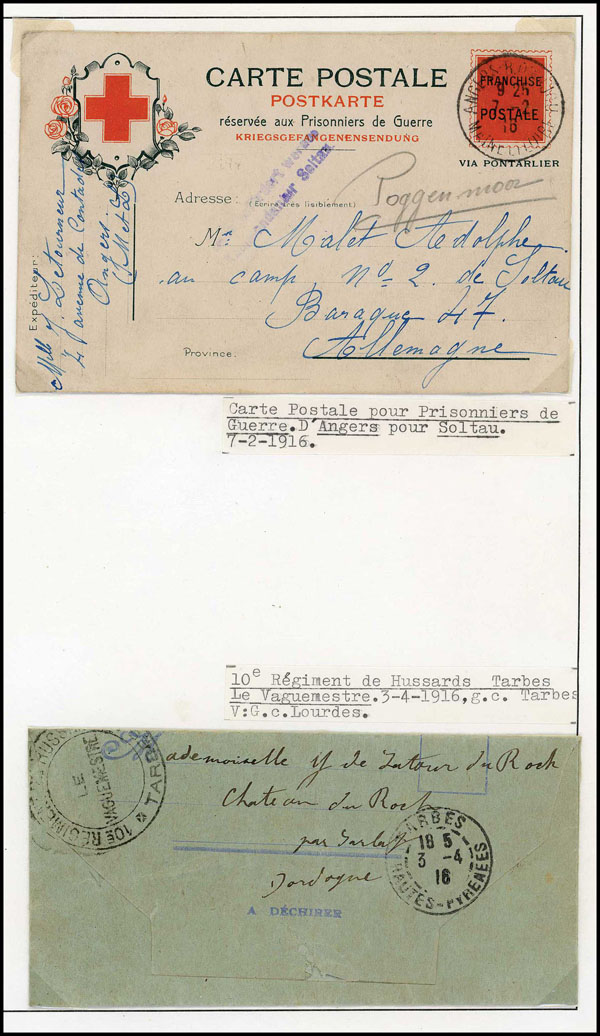 CARTE POSTALE
POSTKARTE
réservée aux Prisonniers de Guerre
KRIEGSGEFANGENENSENDUNG
FRANCHISE
POSTALE
ANGERS
9 25
7 - 2
16
VIA PONTARLIER
werden
Soltau
Poggenmoor
Adresse: (Ecrire très lisiblement)
Mr Malet Adolphe
au camp No 2. de Soltau
Baraque 47
Province:
Allemagne
Expéditeur:
Mlle J. Letourneur
4 avenue de Contades
Angers
Carte Postale pour Prisonniers de
Guerre.D'Angers pour Soltau.
7-2-1916.
10e Régiment de Hussards Tarbes
Le Vaguemestre.3-4-1916,g.c. Tarbes
V:G.c.Lourdes.
10e REGIME
LE
VAGUEMESTRE
TARB
ademoiselle y de Latour du Roch
Chateau du Roch
par Sarlat
Dordogne
A DÉCHIRER
TARBES
18 5
3 -4
16
HAUTES-PYRENEES